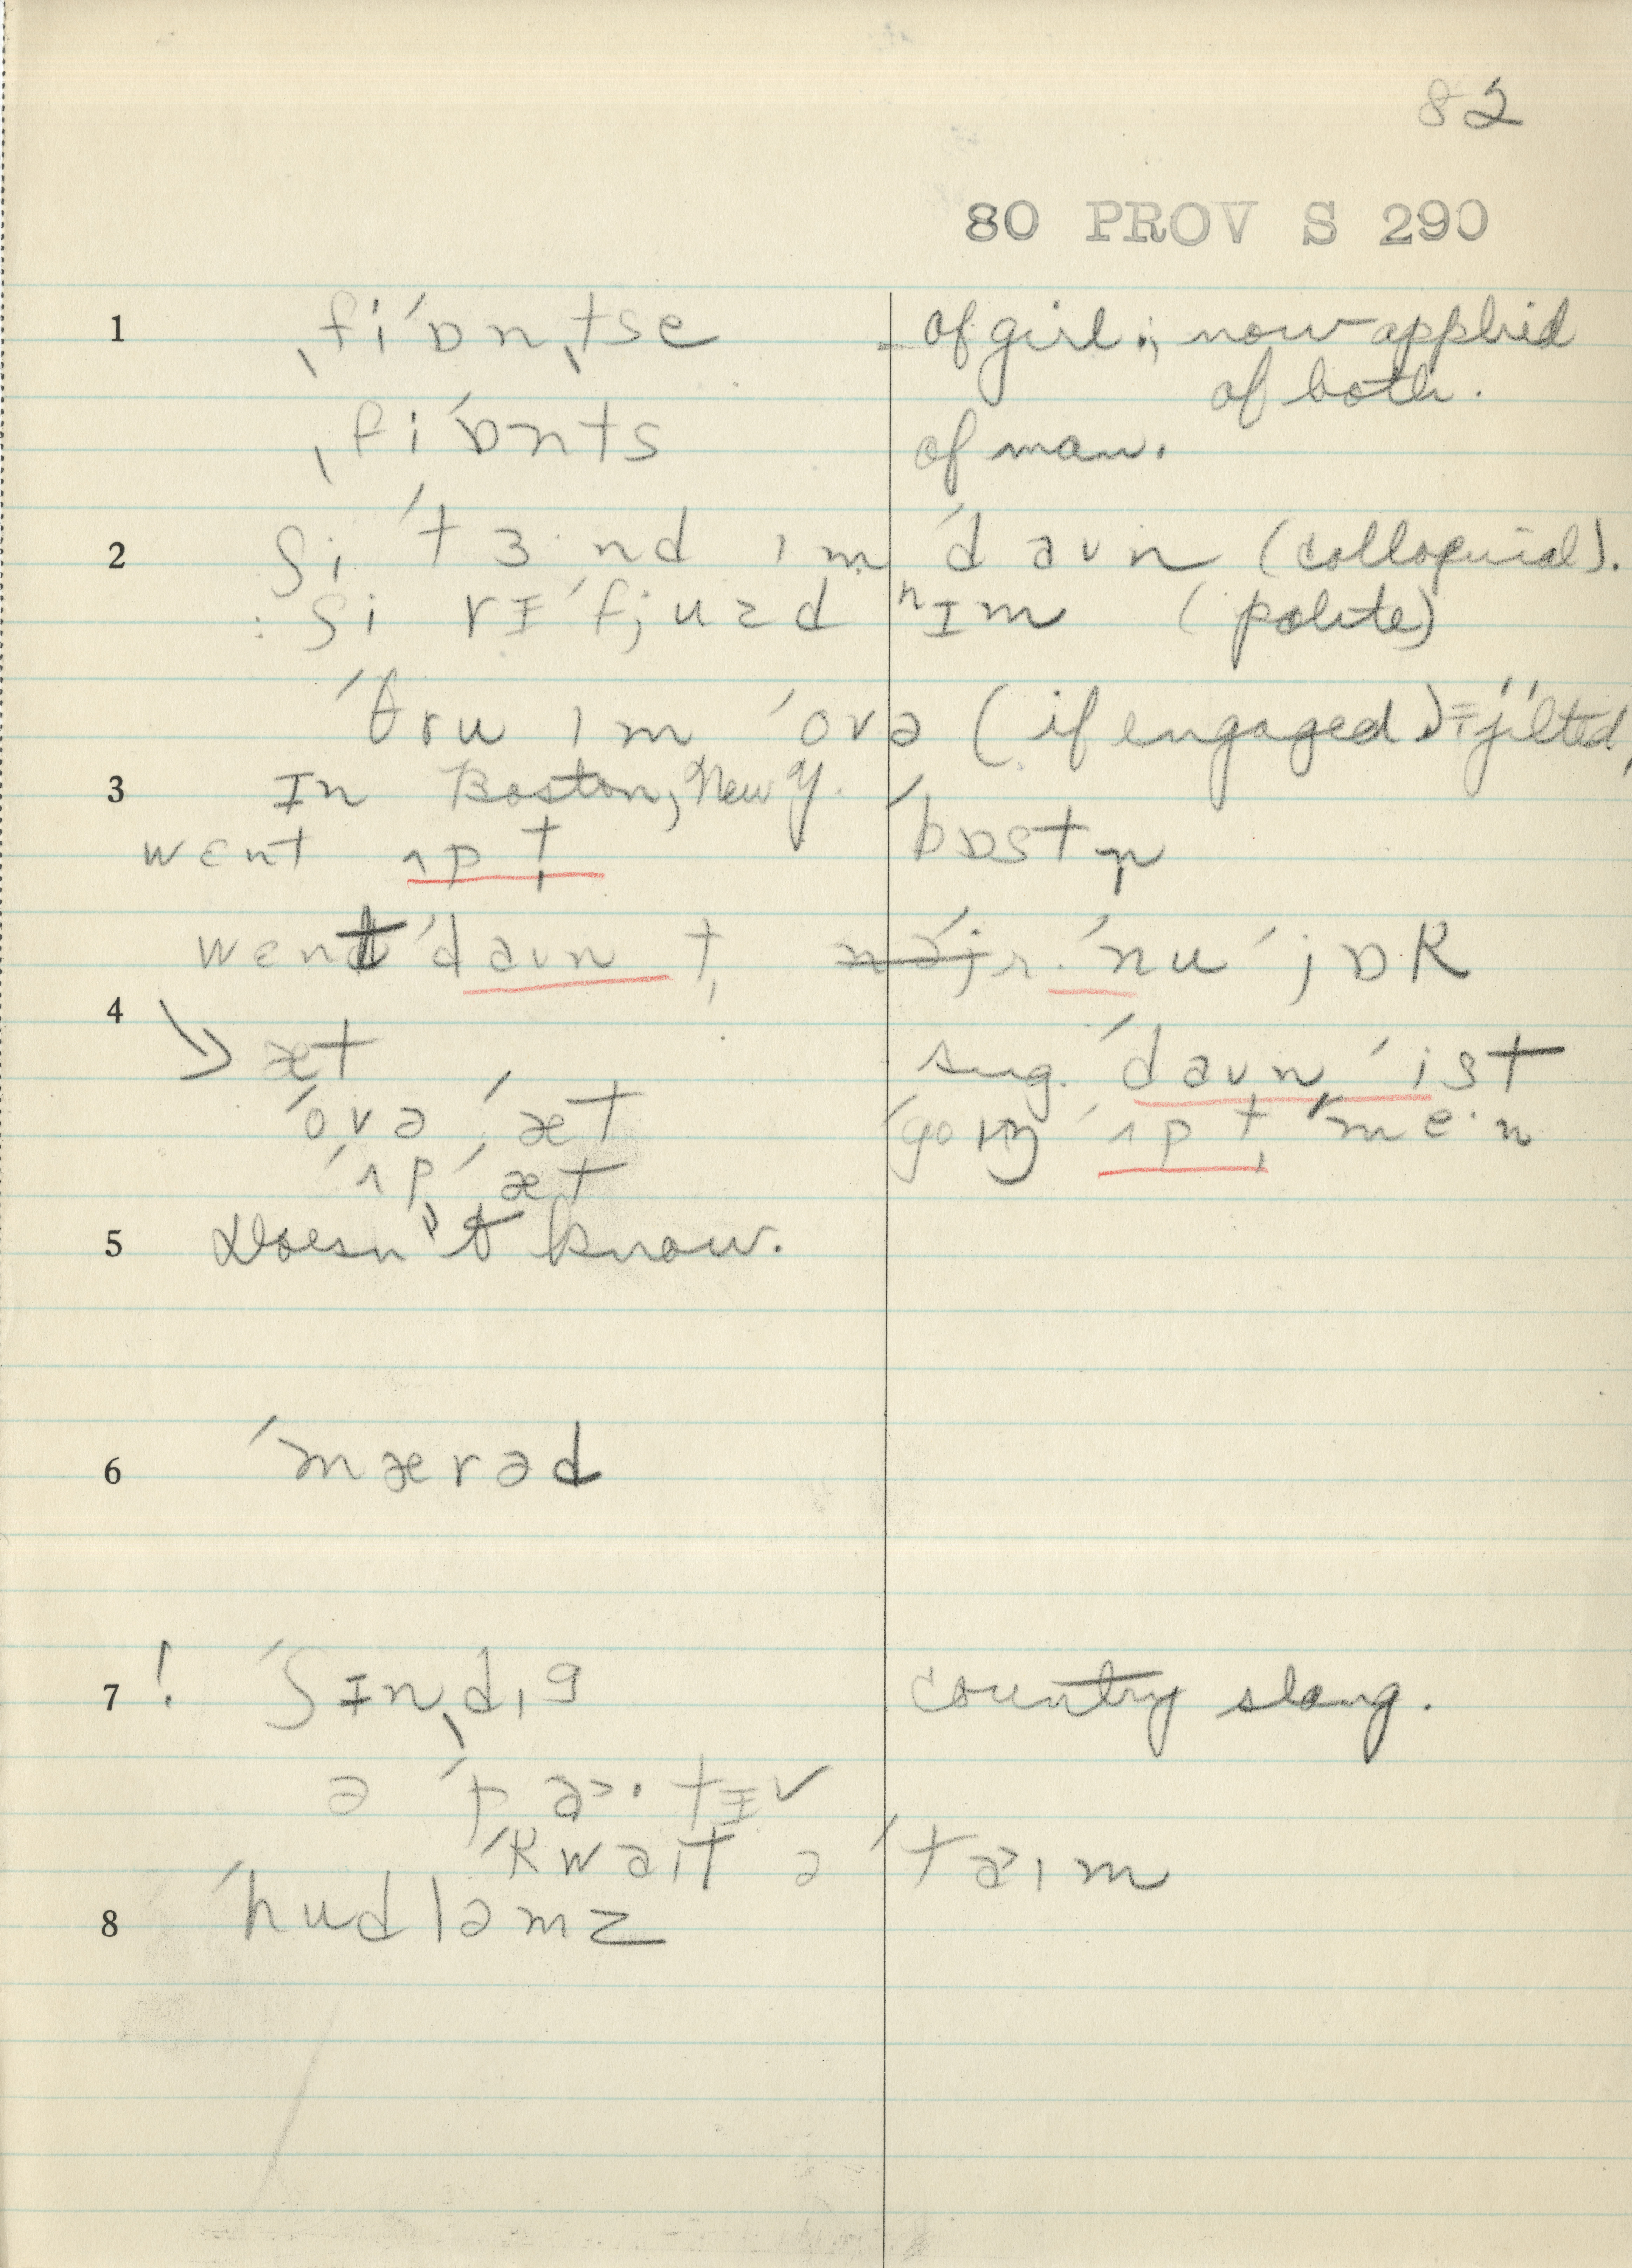 82
80 PROV S 290
1 ˌfiˈɒnˌtse of girl; now applied
of both.
ˌfiˈɒnts of man.
2 ʃi ˈtɜ·nd ɪm ˈdaʊn (colloquial).
: ʃi rɪˈfjuzd hɪm (polite)
ˈθru ɪm ˈovə (if engaged) = jilted
3 In Boston, New Y. ˈbɒstn̩
wɛnt ʌp t̩
wɛnt ˈdaʊn t̩ ˈnu ˈjɒk
4 æt sug. ˈdaʊn ˈist
ˈovə ˈæt ˈgoɪŋ ˈʌp t̩ ˈme·n
ˈʌp ˈæt
5 Doesn't know.
6 ˈmærəd
7 ! ˈʃɪnˌdɪg country slang.
ə ˈpa·tɪ
ˈkwaɪt ə ˈtaɪm
8 ˈhudləmz